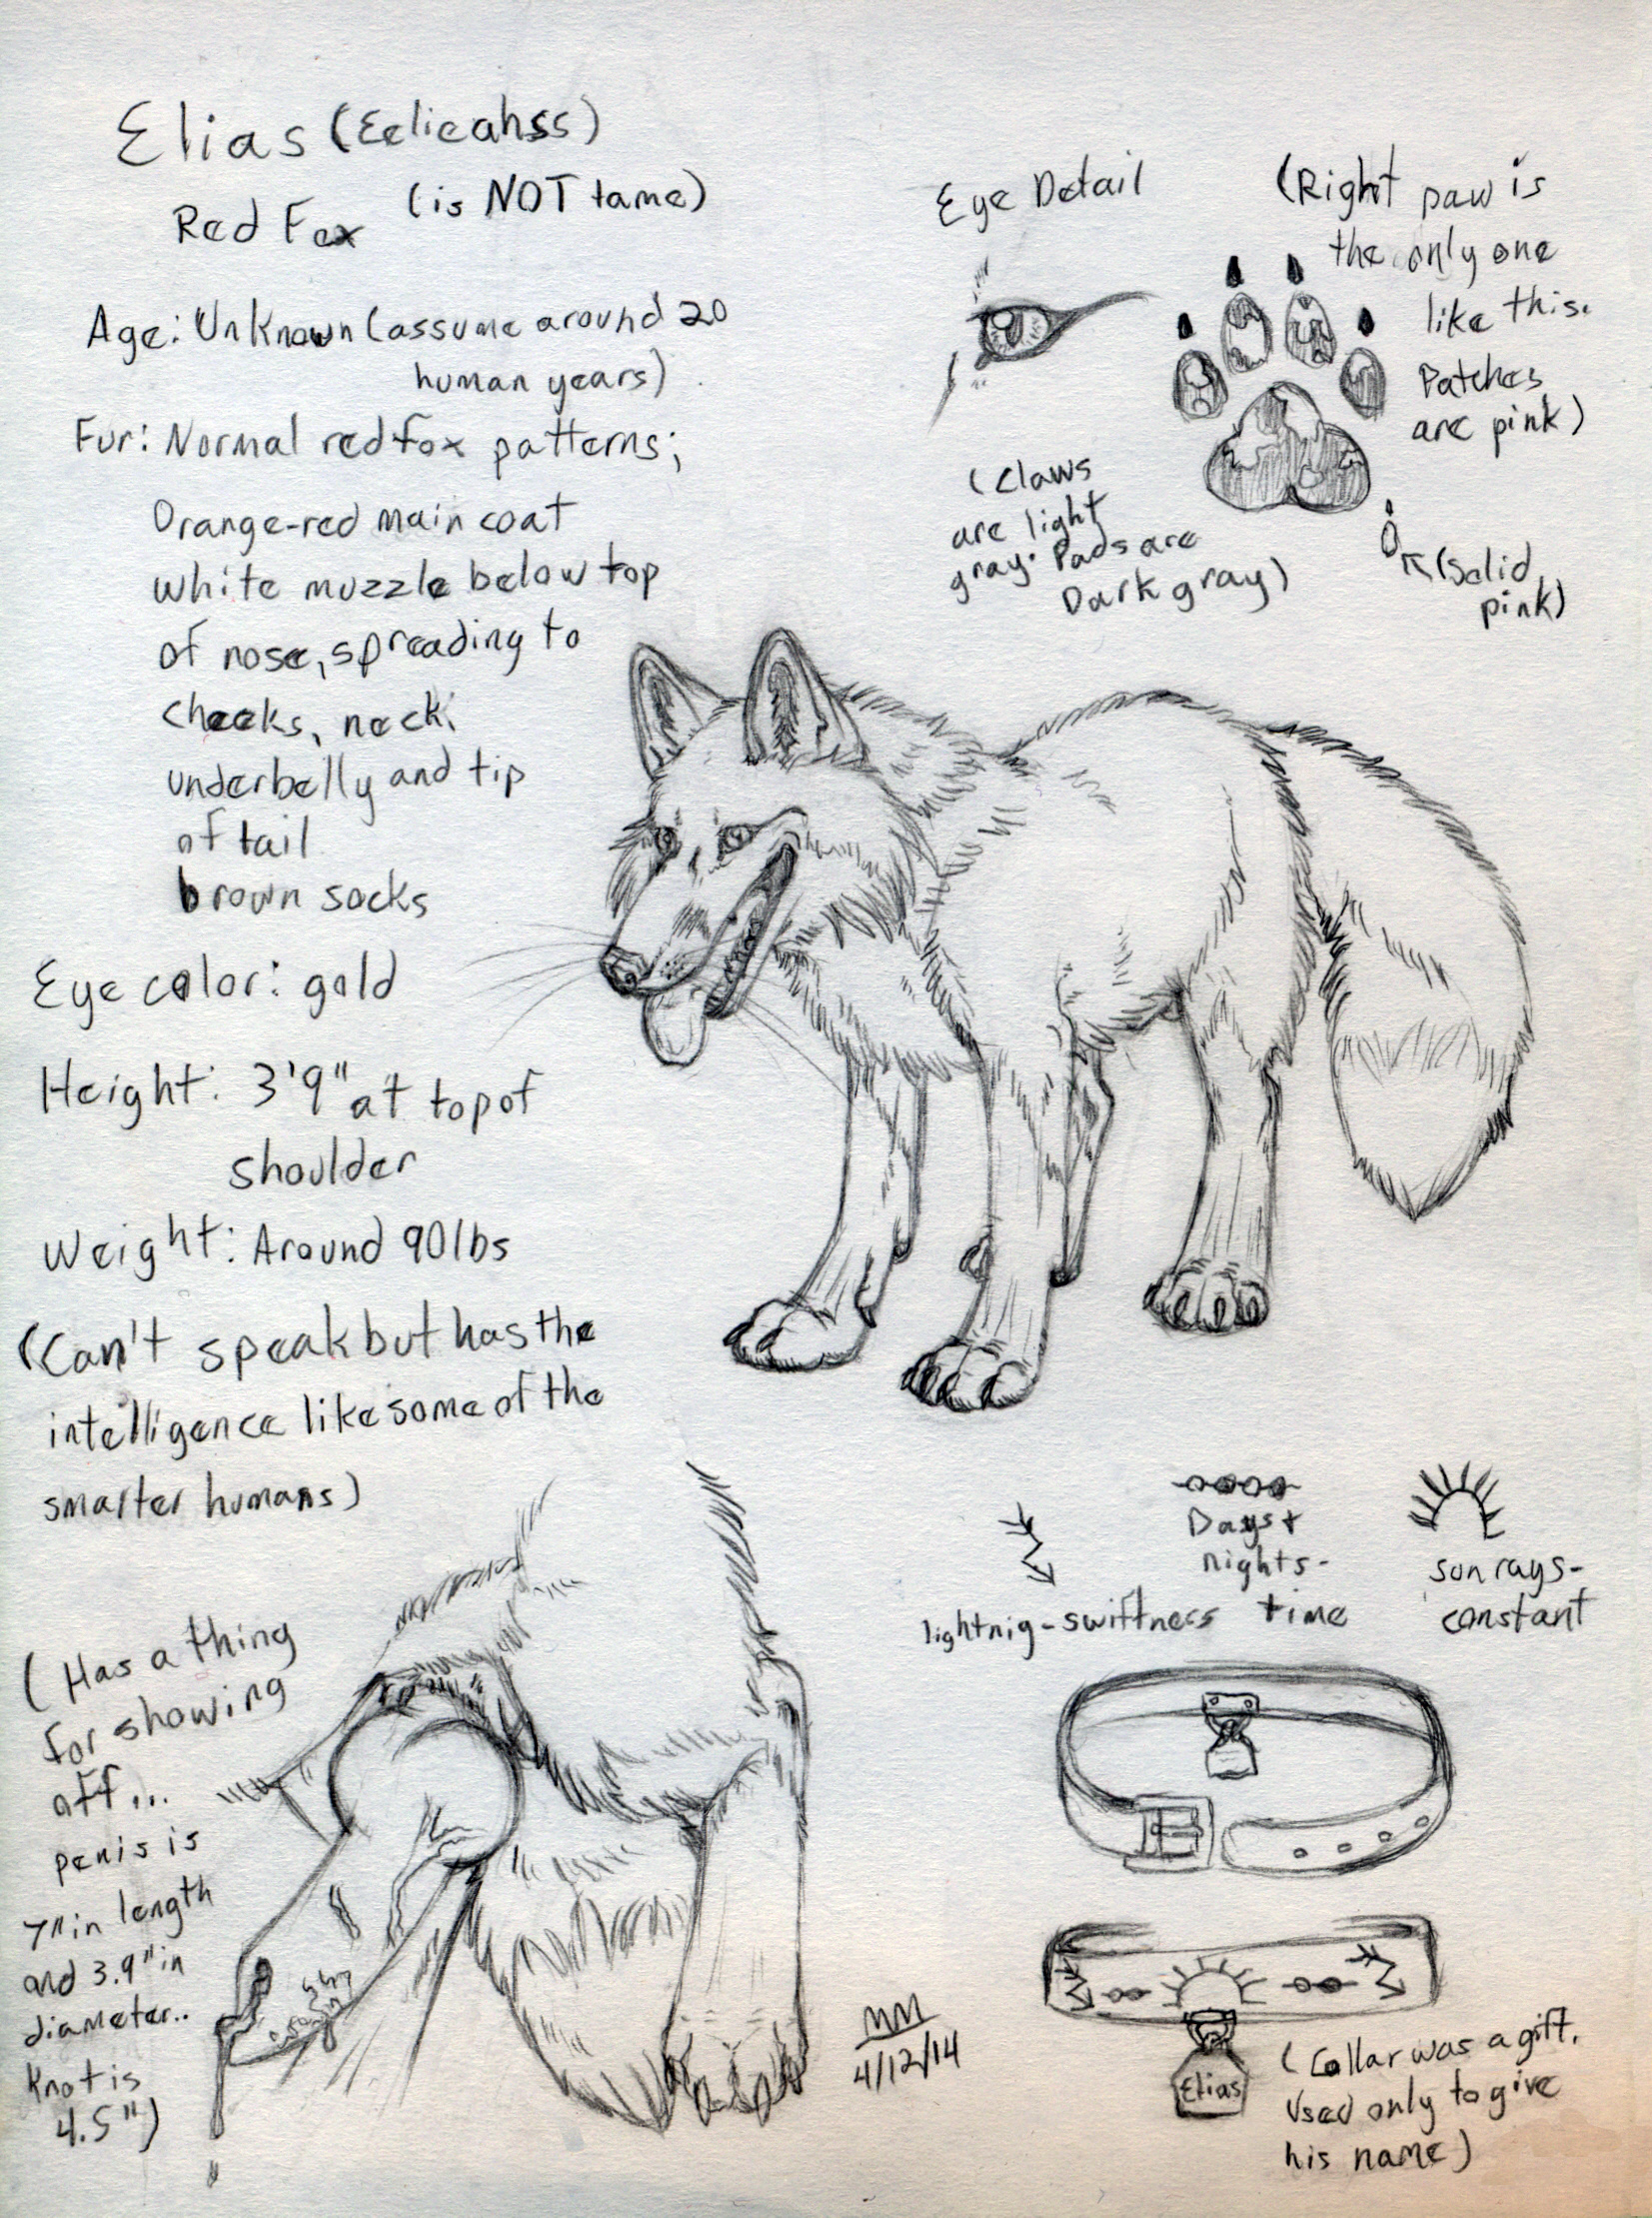 Elias (Eelieahss)
Red Fox (is NOT tame)
Age: Unknown (assume around 20
human years)
Fur: Normal red fox patterns;
Orange-red main coat
white muzzle below top
of nose, spreading to
cheeks, neck,
underbelly and tip
of tail
brown socks
Eye color: gold
Height: 3'9" at top of
shoulder
Weight: Around 90lbs
(Can't speak but has the
intelligence like some of the
smarter humans)
(Has a thing
for showing
off...
penis is
7" in length
and 3.9" in
diameter..
Knot is
4.5")
Eye Detail
(Right paw is
the only one
like this.
Patches
are pink)
(Claws
are light
gray. Pads are
Dark gray)
(solid
pink)
lightnig-swiftness
Days +
nights-
time
sun rays-
constant
Elias
(Collar was a gift.
Used only to give
his name)
MM
4/12/14